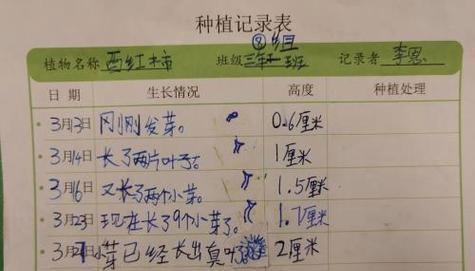 种植记录表
⑧组
植物名称 西红柿 班级 三年 班 记录者 李恩
日期 生长情况 高度 种植处理
3月13日 刚刚发芽。 0.6厘米
3月14日 长了两片叶子。 1厘米
3月16日 又长了两个小芽。 1.5厘米
3月23日 现在长了9个小芽了。 1.7厘米
小芽已经长出真叶 2厘米